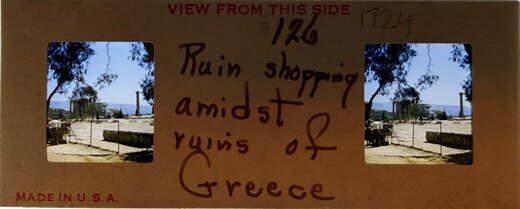 VIEW FROM THIS SIDE
1724
126
Ruin shopping
amidst
ruins of
Greece
MADE IN U.S.A.